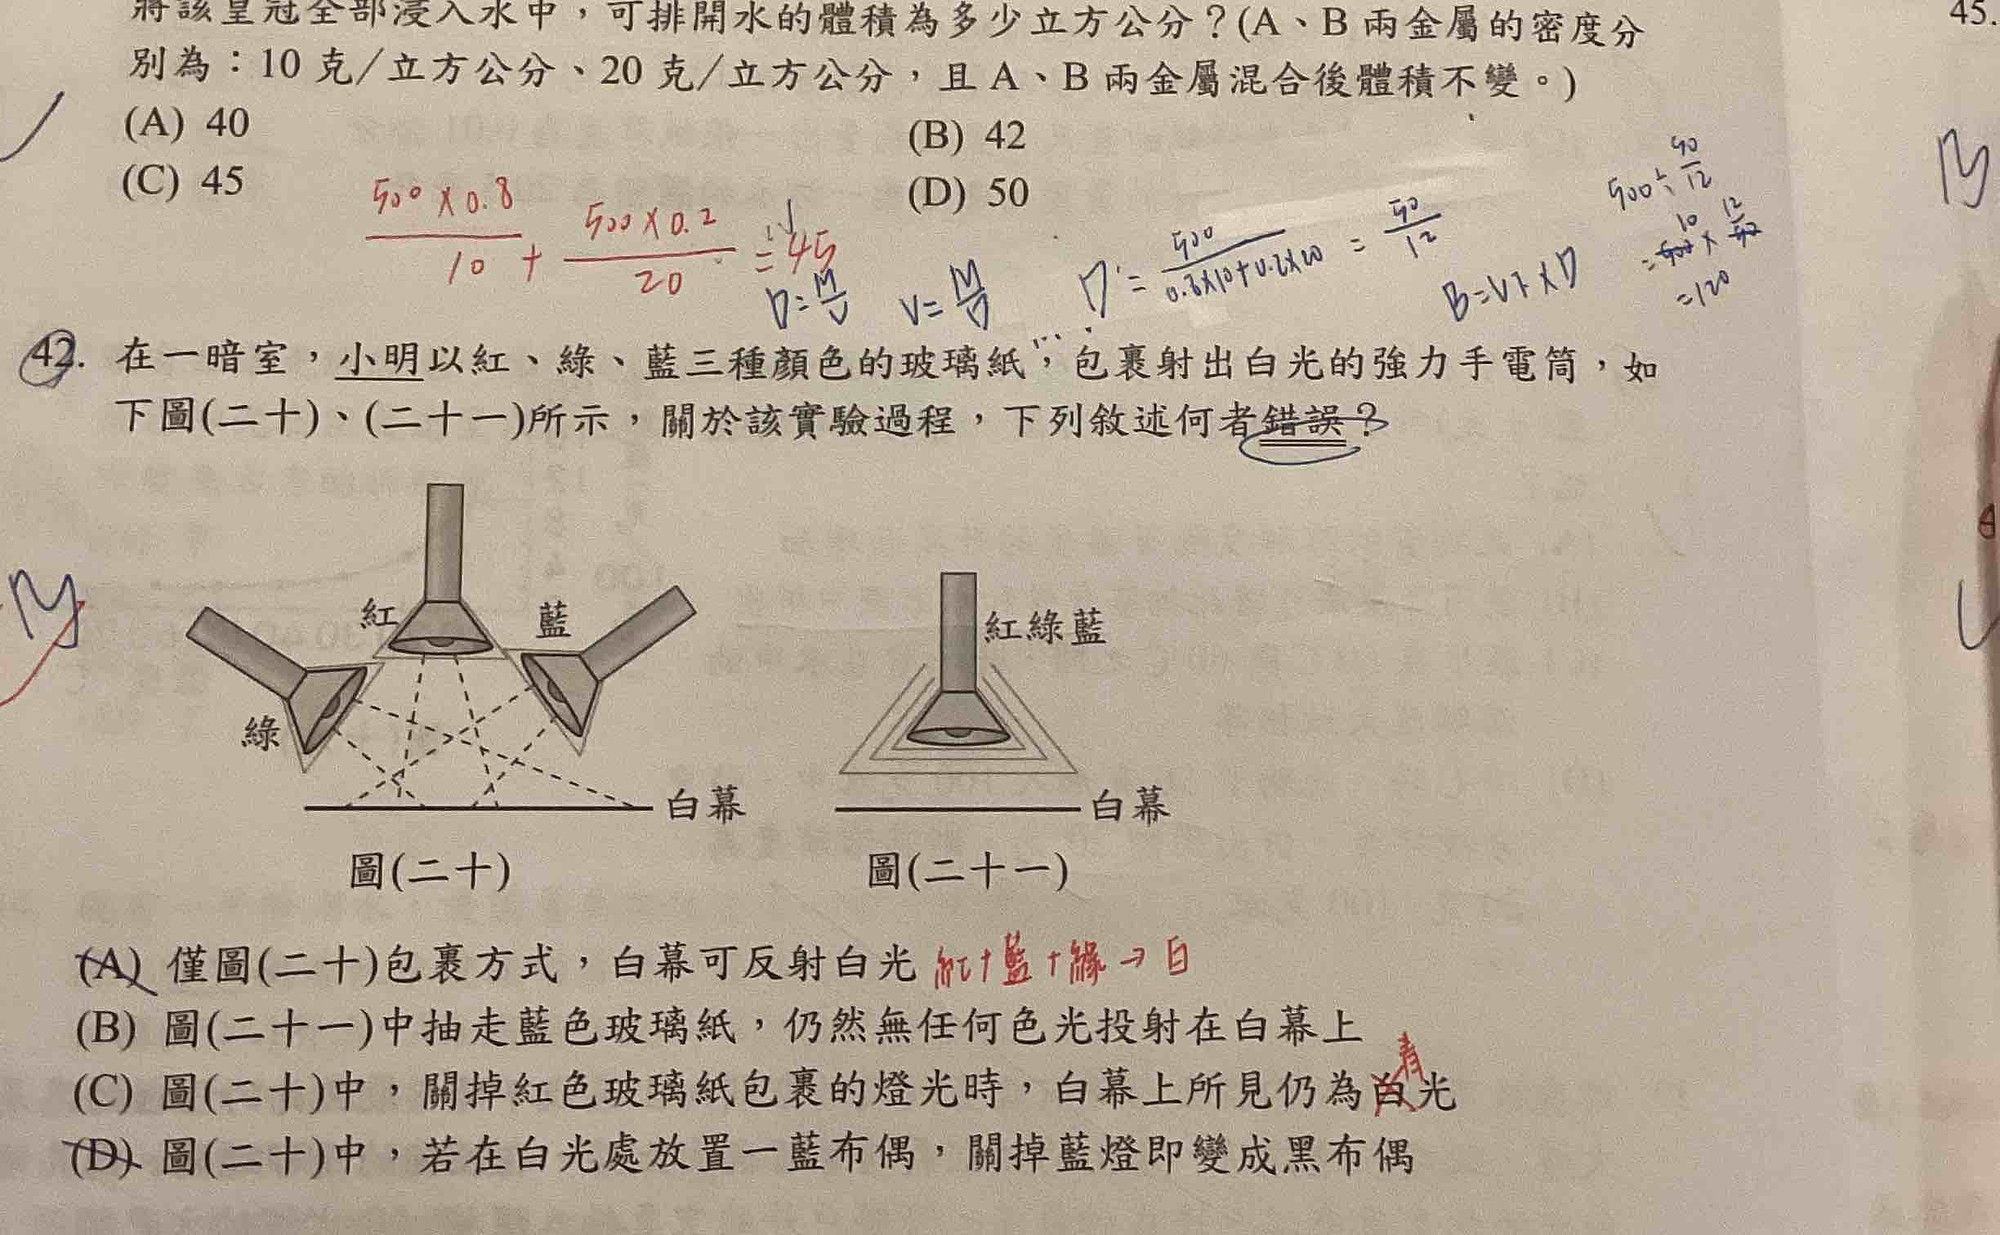 將該皇冠全部浸入水中,可排開水的體積為多少立方公分?(A、B 兩金屬的密度分
別為:10 克/立方公分、20 克/立方公分,且 A、B 兩金屬混合後體積不變。)
(A) 40
(B) 42
(C) 45
(D) 50
500×0.8/10 + 500×0.2/20 = 45
D=M/V V=M/D
B=V下×D
=120
45.
42. 在一暗室,小明以紅、綠、藍三種顏色的玻璃紙,包裹射出白光的強力手電筒,如
下圖(二十)、(二十一)所示,關於該實驗過程,下列敘述何者錯誤?
紅
藍
綠
白幕
圖(二十)
紅綠藍
白幕
圖(二十一)
(A) 僅圖(二十)包裹方式,白幕可反射白光 紅+藍+綠→白
(B) 圖(二十一)中抽走藍色玻璃紙,仍然無任何色光投射在白幕上
青
(C) 圖(二十)中,關掉紅色玻璃紙包裹的燈光時,白幕上所見仍為白光
(D) 圖(二十)中,若在白光處放置一藍布偶,關掉藍燈即變成黑布偶